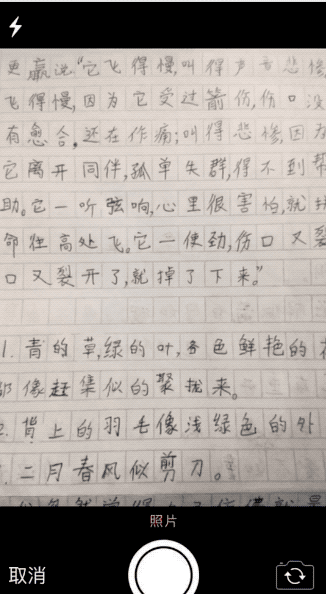 更羸说:"它飞得慢,叫得声音悲惨
飞得慢,因为它受过箭伤,伤口没
有愈合,还在作痛;叫得悲惨,因为
它离开同伴,孤单失群,得不到帮
助。它一听弦响,心里很害怕,就拼
命往高处飞。它一使劲,伤口又裂
口又裂开了,就掉了下来。"
1.青的草,绿的叶,各色鲜艳的花
都像赶集似的聚拢来。
2.背上的羽毛像浅绿色的外
二月春风似剪刀。
照片
取消